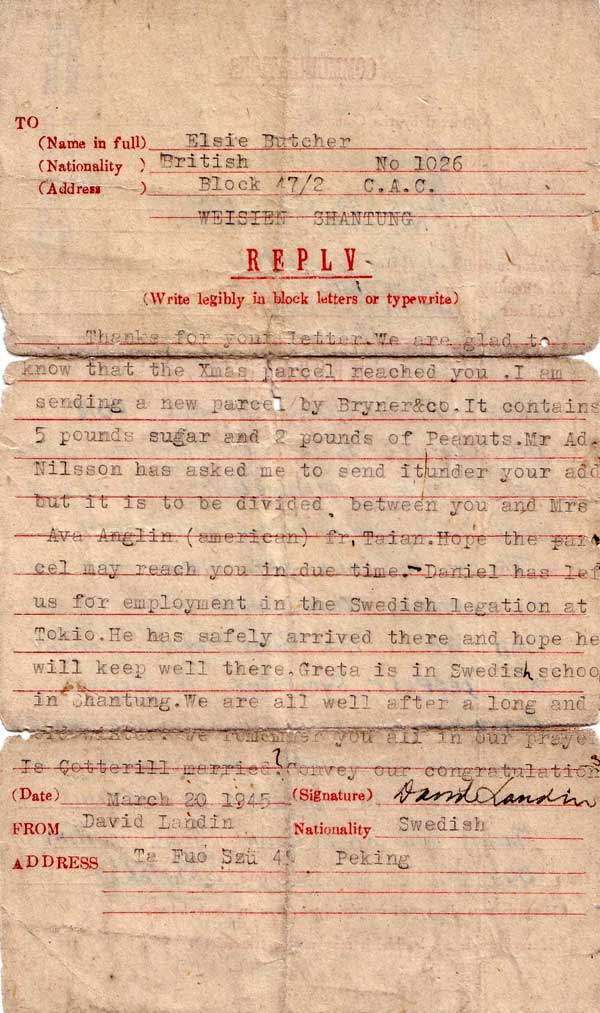 TO
(Name in full) Elsie Butcher
(Nationality ) British No 1026
(Address ) Block 47/2 C.A.C.
WEISIEN SHANTUNG
REPLY
(Write legibly in block letters or typewrite)
Thanks for your letter.We are glad to
know that the Xmas parcel reached you .I am
sending a new parcel by Bryner&co.It contains
5 pounds sugar and 2 pounds of Peanuts.Mr Ad.
Nilsson has asked me to send it under your add
but it is to be divided between you and Mrs
Ava Anglin (american) fr, Taian.Hope the par
cel may reach you in due time.-Daniel has lef
us for employment in the Swedish legation at
Tokio.He has safely arrived there and hope he
will keep well there.Greta is in Swedish schoo
in Shantung.We are all well after a long and
winter. We remember you all in our praye
Is Cotterill married?Convey our congratulation
(Date) March 20 1945 (Signature) David Landin
FROM David Landin Nationality Swedish
ADDRESS Ta Fuo Szü Peking